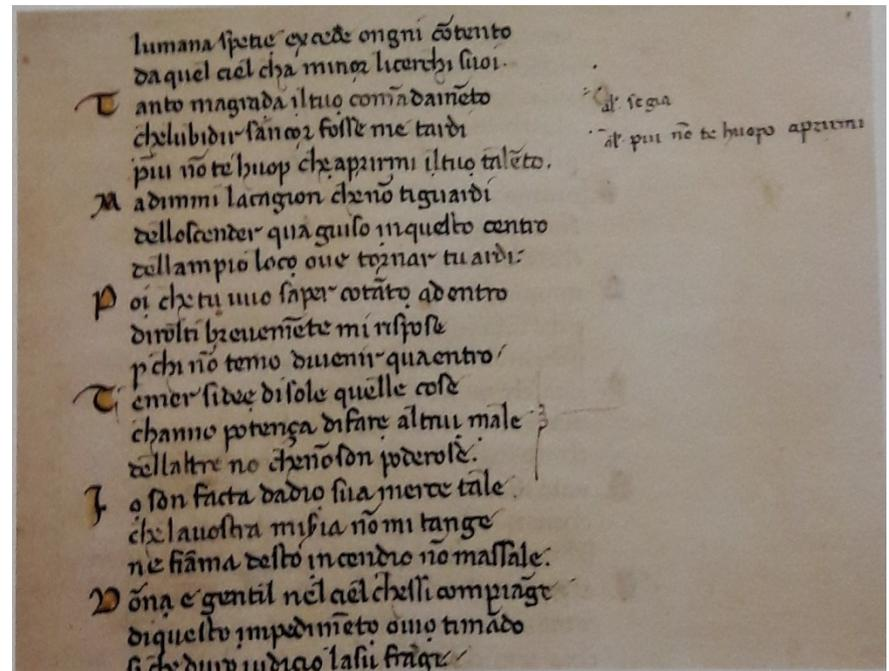 lumana spetie excede ongni cōtento
da quel ciel cha minor licerchi suoi.
Tanto magrada iltuo comādamēto
chelubidir sancor fosse me tardi
al' segia
piu nō te huop cheaprirmi iltuo talēto.
al' piu nō te huopo aprirmi
Madimmi lacagion chenō tiguardi
delloscender quagiuso inquesto centro
dellampio loco oue tornar tu ardi:
Poi che tu uuo saper cotāto adentro
dirolti breuemēte mi rispose
pchi nō temo diuenir quaentro
Temer sidee disole quelle cose
channo potença difare altrui male
dellaltre no chenōson poderose.
Io son facta dadio sua merce tale
chelauostra misia nō mi tange
ne fiāma desto incendio nō massale.
Dōna e gentil nel ciel chessi compiāge
diquesto impedimēto ouio timādo
si che duro iudicio lasu frāge